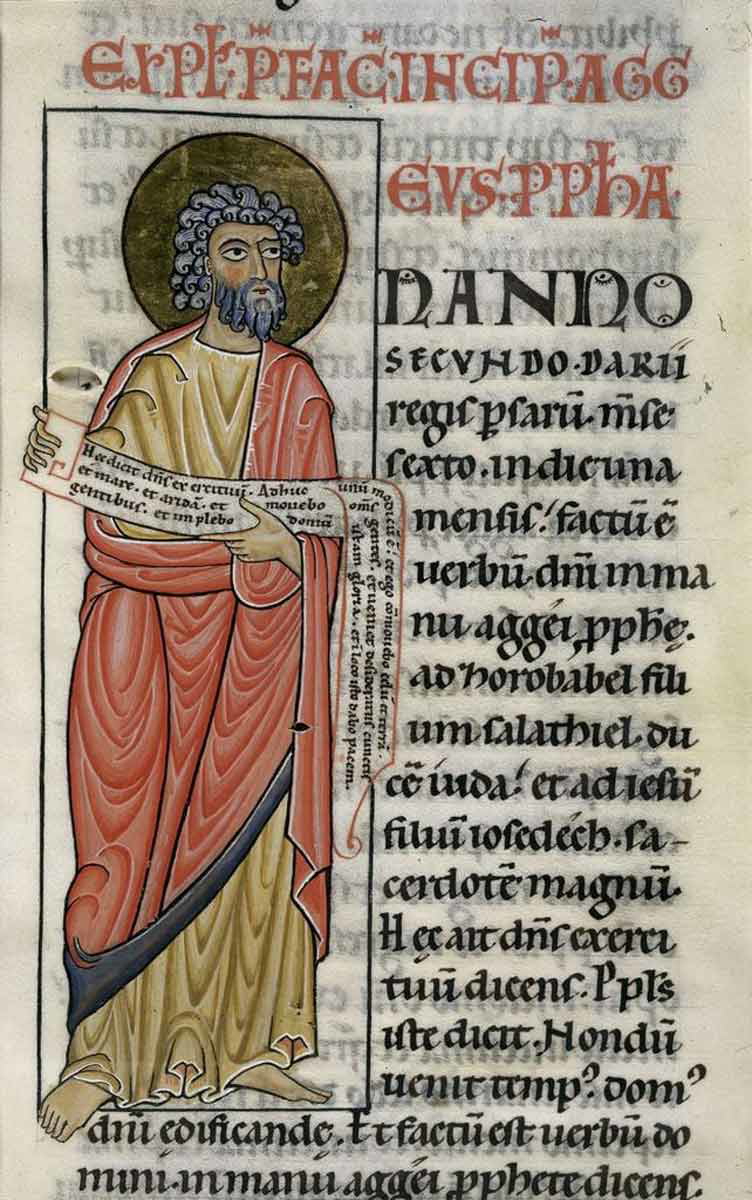 EXPLT·PFAC·INCIP·AGG
EVS·PPHA
N ANNO
SECVNDO·DARII
regis psarū·mēse
sexto·in die una
mensis; factū ē
uerbū·dn̄i in ma
nu aggéi pphę·
ad zorobabel fili
um salathiel·du
cē iuda; et ad iesū
filiū iosedéch·sa-
cerdotē magnū·
Hęc ait dn̄s exerci
tuū dicens·Pp̄ls
iste dicit·Nondū
uenit temp⁹ dom⁹
dn̄i ędificandę·Et factū est uerbū do
mini·in manu aggéi pphete dicens·
Hęc dicit dn̄s exercituū·Adhuc unū modicū ē; et ego cōmouebo cęlū et terrā·
et mare·et aridā·et mouebo om̄s gentes·et ueniet desideratus cunctis
gentibus·et implebo domū istam gloria·et ī loco isto dabo pacem·